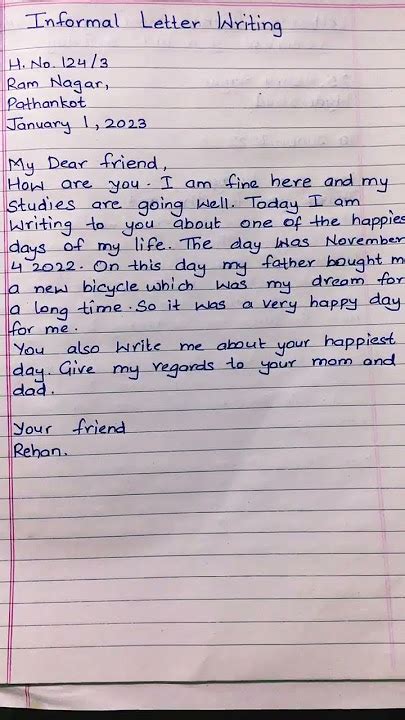 Informal Letter Writing
H. No. 124/3
Ram Nagar,
Pathankot
January 1, 2023
My Dear friend,
How are you. I am fine here and my
studies are going well. Today I am
writing to you about one of the happies
days of my life. The day was November
4 2022. On this day my father bought m
a new bicycle which was my dream for
a long time. So it was a very happy day
for me.
You also write me about your happiest
day. Give my regards to your mom and
dad.
Your friend
Rehan.